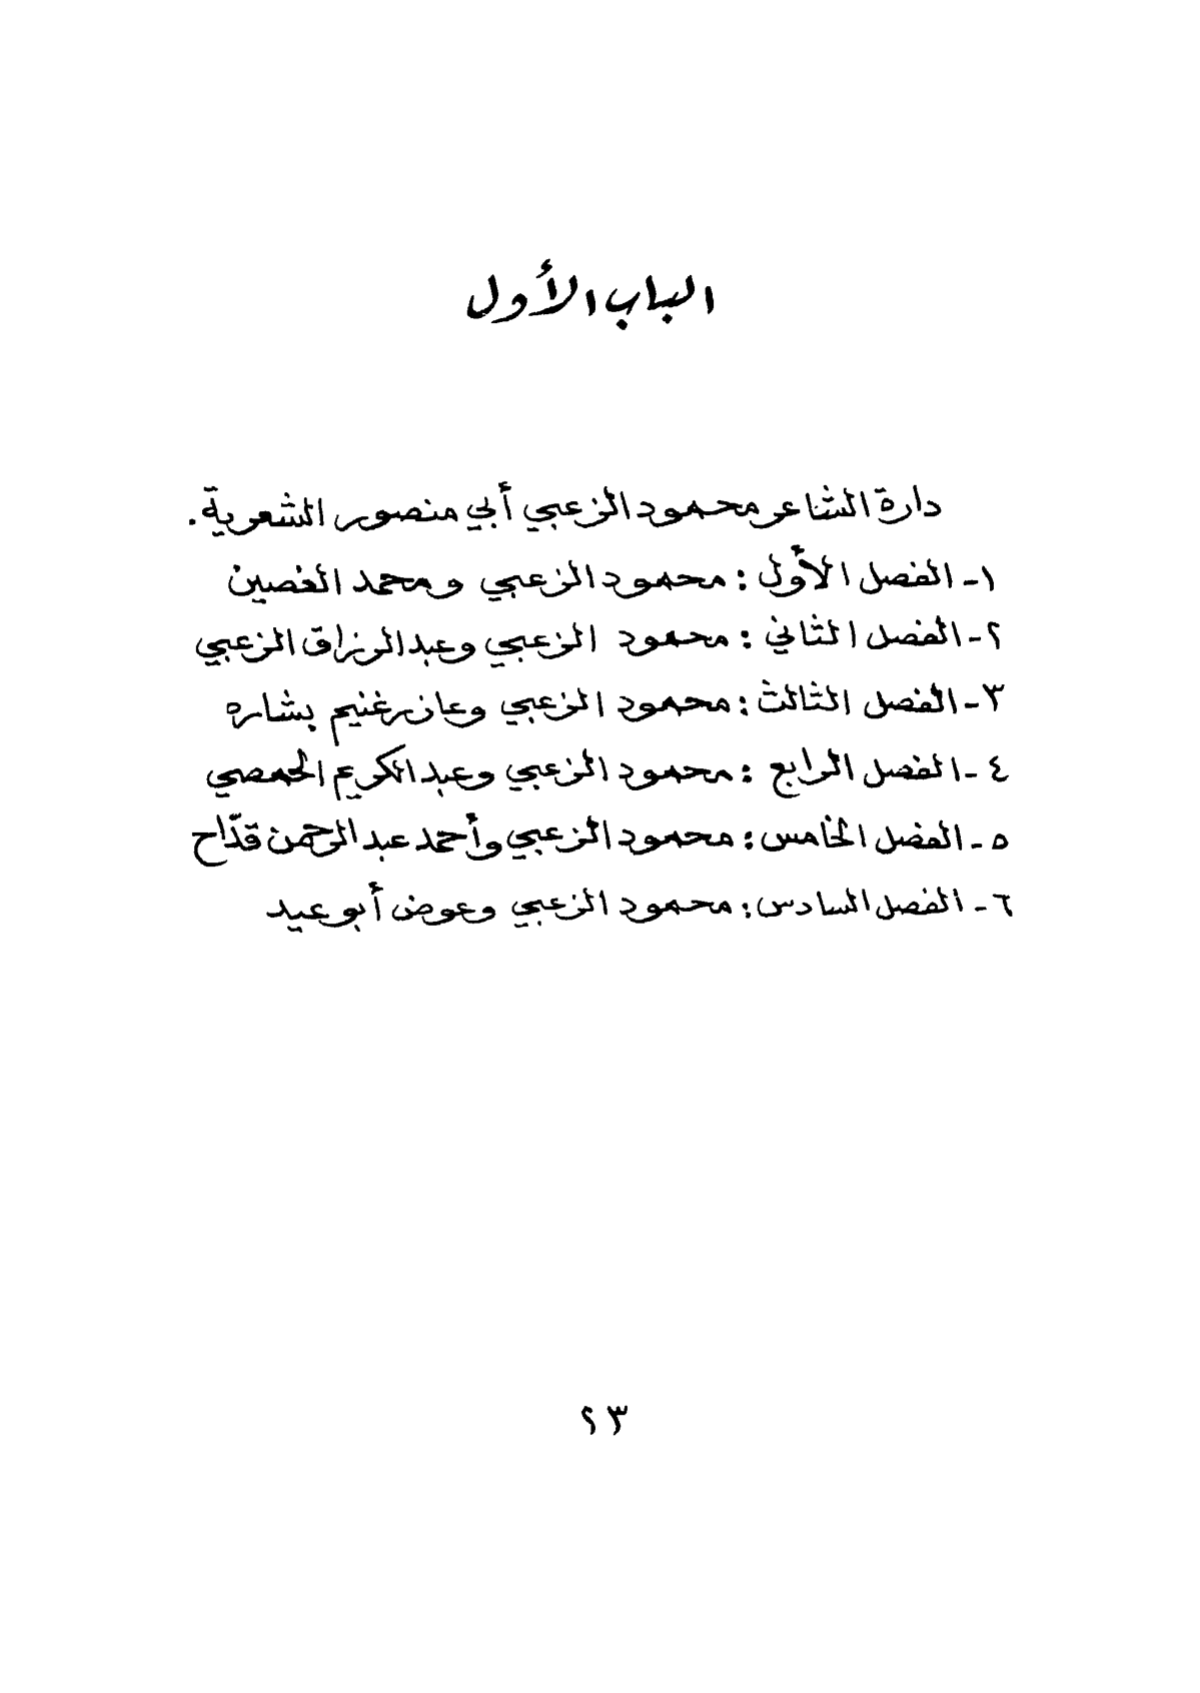 الباب الأول
دارة الشاعر محمود الزعبي أبي منصور الشعرية.
١- الفصل الأول : محمود الزعبي ومحمد الغصين
٢- الفصل الثاني : محمود الزعبي وعبد الرزاق الزعبي
٣- الفصل الثالث : محمود الزعبي وعازر غنيم بشاره
٤- الفصل الرابع : محمود الزعبي وعبد الكريم الحمصي
٥- الفصل الخامس : محمود الزعبي وأحمد عبد الرحمن قدّاح
٦- الفصل السادس : محمود الزعبي وعوض أبو عيد
٢٣